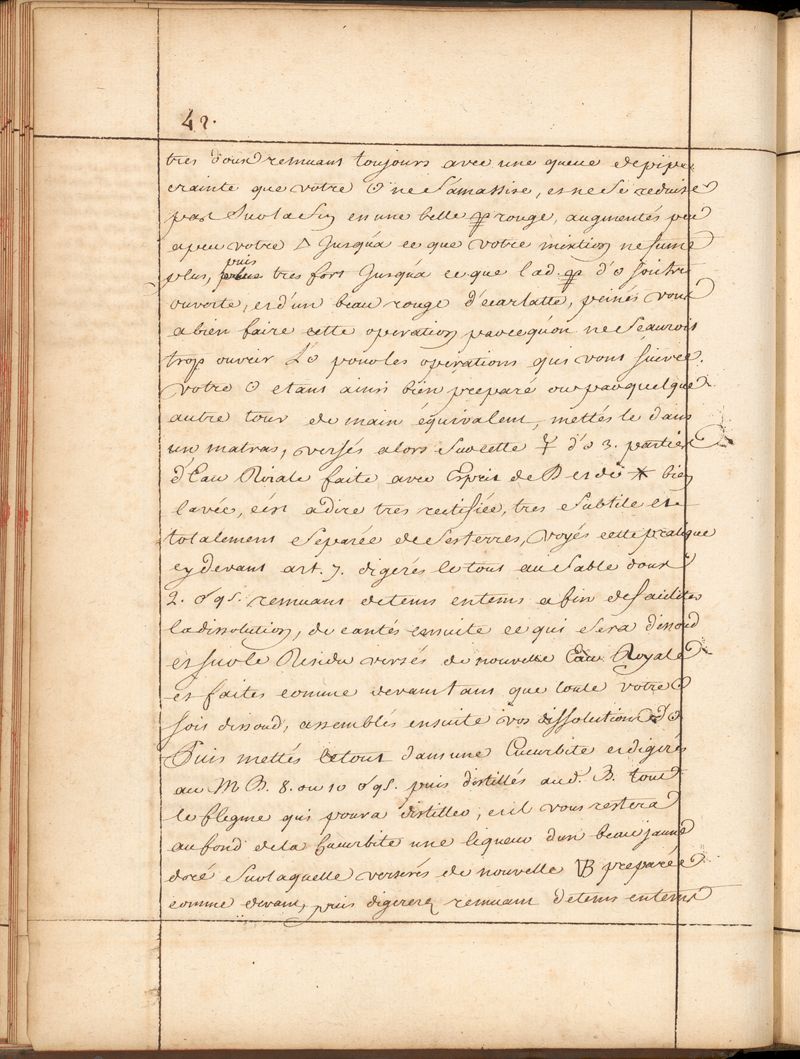 42.
tres doux remuant toujours avec une queue de pipe
crainte que votre ☉ ne Samassise, et ne Se reduise
par Sur la fin en une belle rouge, augmentés peu
apeu votre △ Jusqúa ce que votre mixtion ne fume
plus, puis tres fort Jusqúa ce que lad. d'☉ soit tres
ouverte, et d'un beau rouge d'ecarlatte, peinés vous
a bien faire cette operation parcequon ne Scauroit
trop ouvrir L'☉ pour les operations qui vont suivre.
votre ☉ etant ainsi bien preparé ou par quelque
autre tour de main équivalent, mettés le dans
un matras, versés alors Sur cette d'☉ 3. parties
d'Eau Roiale faite avec Esprit de et de ✶ bien
lavée, c'est adire tres rectifiée, tres Subtile et
totalement Separée de Ses terres, voyés cette pratique
cy devant art. 7. digerés le tout au Sable doux
2. remuant de tems en tems afin de faciliter
la dissolution, decantés ensuite ce qui Sera dissoud
et sur le Residu versés de nouvelle Eau Royale
et faites comme devant tant que toute votre ☉
soit dissoud, assemblés ensuite vos dissolutions d'☉
Puis mettés le tout dans une Cucurbite et digerés
au M B. 8. ou 10 puis distillés aud. B. tout
le flegme qui poura distiller, et il vous restera
au fond de la Cucurbite une liqueur d'un beau jaune
doré Sur laquelle verserés de nouvelle preparée
comme devant, puis digererez remuant de tems en tems